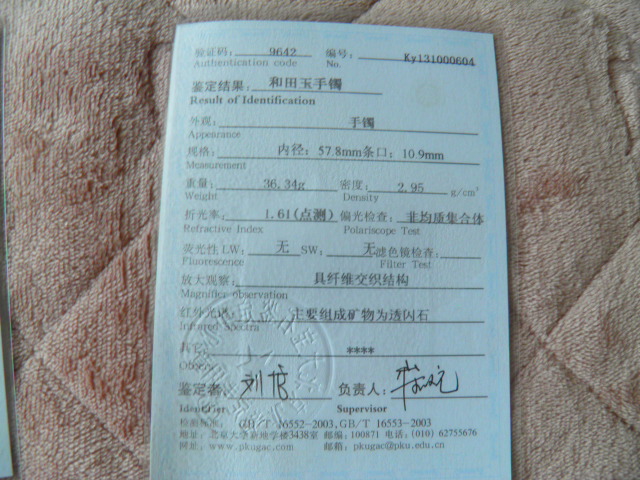 验证码： 9642 编号： Ky131000604
Authentication code No.
鉴定结果： 和田玉手镯
Result of Identification
外观： 手镯
Appearance
规格： 内径：57.8mm条口：10.9mm
Measurement
重量： 36.34g 密度： 2.95 g/cm³
Weight Density
折光率： 1.61(点测) 偏光检查： 非均质集合体
Refractive Index Polariscope Test
荧光性 LW： 无 SW： 无 滤色镜检查：
Fluorescence Filter Test
放大观察： 具纤维交织结构
Magnifier observation
红外光谱： 主要组成矿物为透闪石
Infrared Spectra
其它： ****
鉴定者： 负责人：
Identifier Supervisor
检测标准： GB/T 16552-2003,GB/T 16553-2003
地址：北京大学新地学楼3438室 邮编：100871 电话：(010) 62755676
网址：www.pkugac.com 邮箱：pkugac@pku.edu.cn